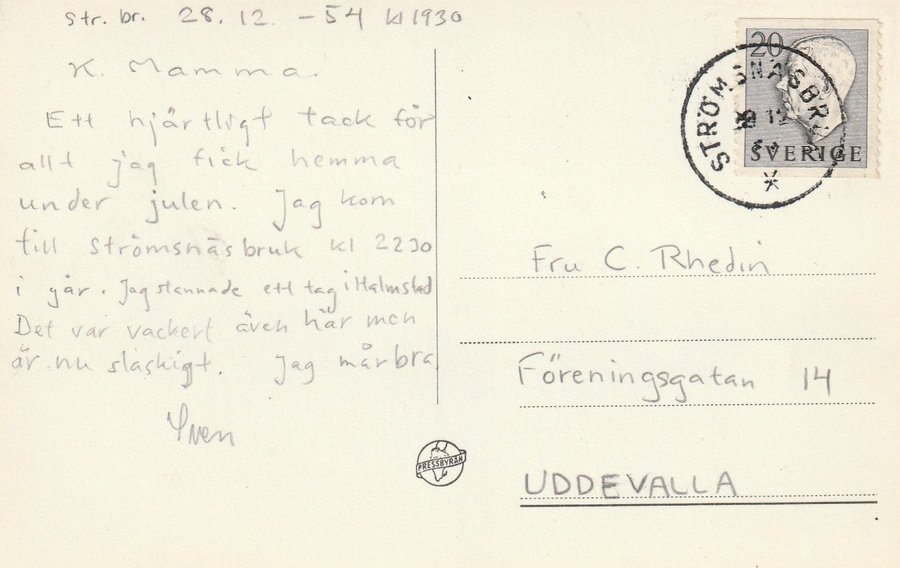 Str. br. 28. 12. -54 kl 1930
K. Mamma.
Ett hjärtligt tack för
allt jag fick hemma
under julen. Jag kom
till Strömsnäsbruk kl 2230
i går. Jag stannade ett tag i Halmstad
Det var vackert även här men
är nu slaskigt. Jag mår bra
Sven
20
SVERIGE
STRÖMSNÄSBRU
12
Fru C. Rhedin
Föreningsgatan 14
UDDEVALLA
PRESSBYRÅN